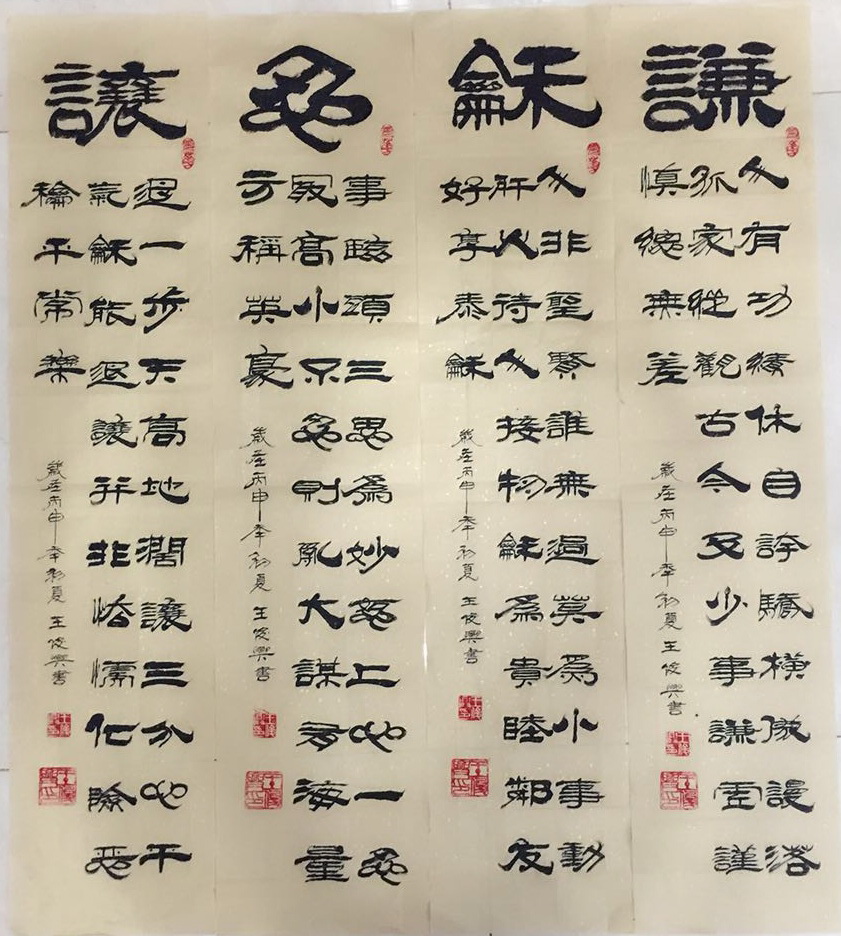 謙
人有功績休自誇驕橫傲謾落
孤家縱觀古今多少事謙虛謹
慎總無差
歲在丙申年初夏 王俊興書
龢
人非聖賢誰無過莫為小事動
肝火待人接物龢為貴睦鄰友
好享泰龢
歲在丙申年初夏 王俊興書
忍
事臨頭三思為妙怒上心一忍
最高小不忍則亂大謀有海量
方稱英豪
歲在丙申年初夏 王俊興書
讓
退一步天高地闊讓三分心平
氣龢能退讓並非怯懦化險惡
稐平常樂
歲在丙申年初夏 王俊興書